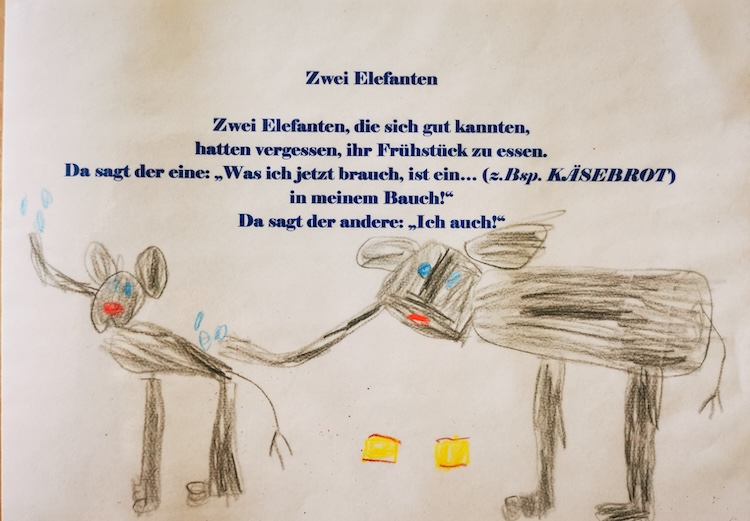 Zwei Elefanten
Zwei Elefanten, die sich gut kannten,
hatten vergessen, ihr Frühstück zu essen.
Da sagt der eine: „Was ich jetzt brauch, ist ein... (z.Bsp. KÄSEBROT)
in meinem Bauch!“
Da sagt der andere: „Ich auch!“